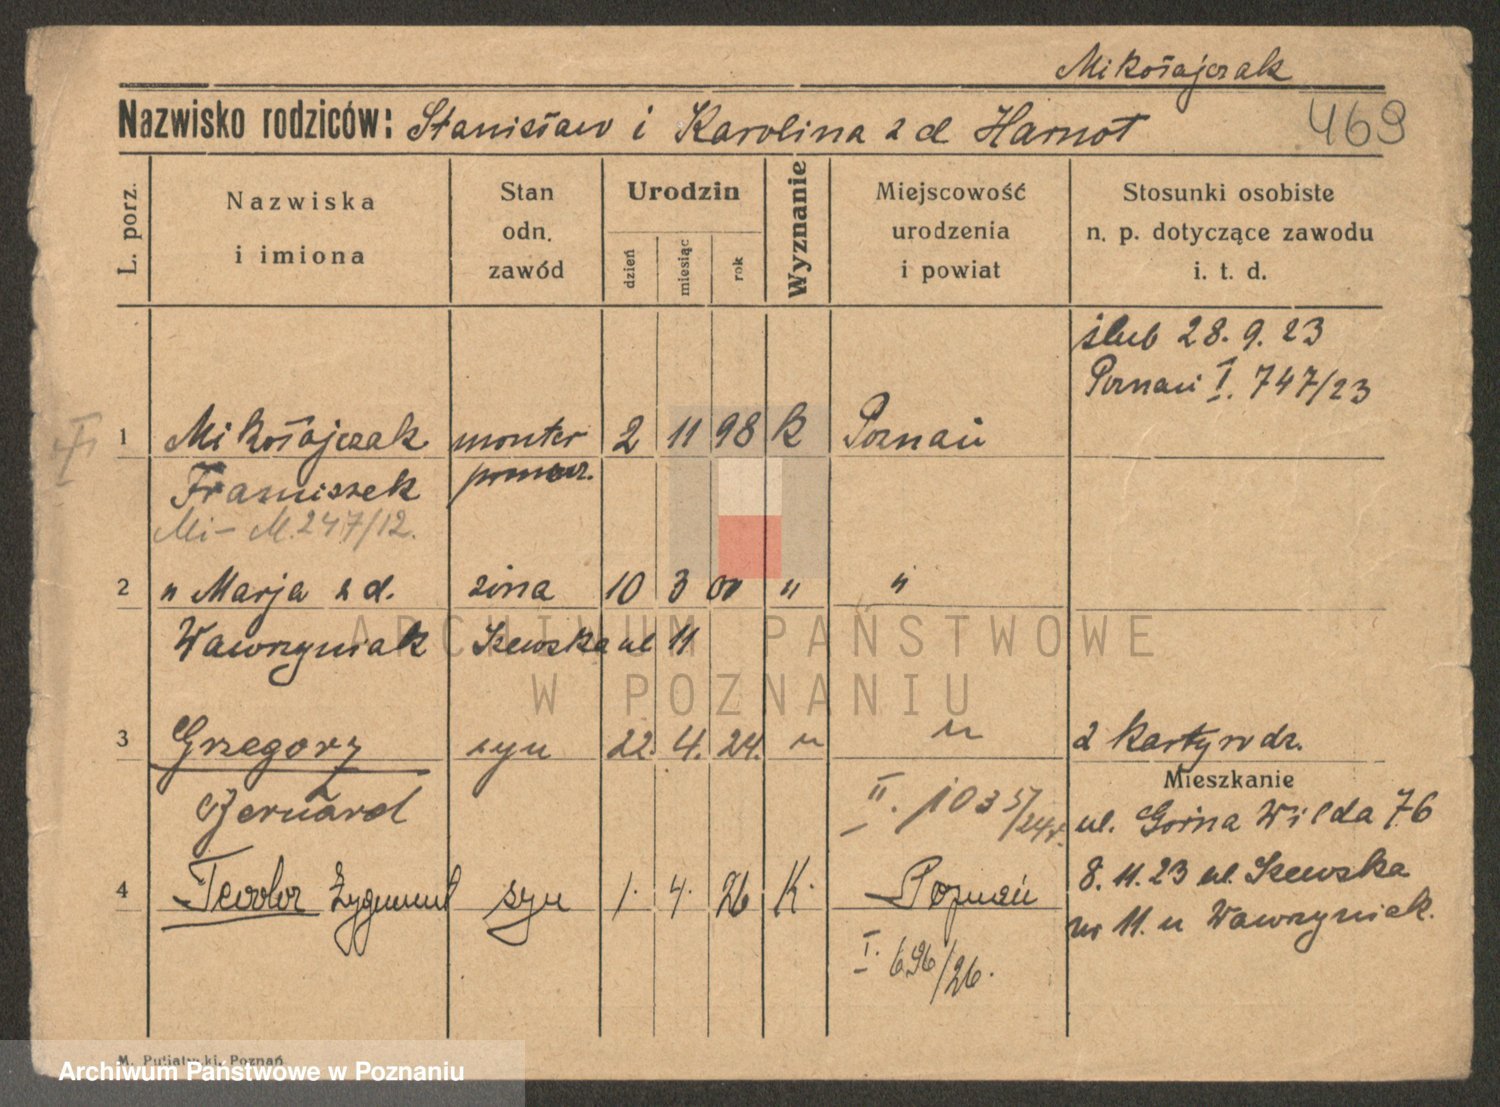 Mikołajczak
Nazwisko rodziców: Stanisław i Karolina z d Harnot
469
L. porz.
Nazwiska
i imiona
Stan
odn.
zawód
Urodzin
dzień
miesiąc
rok
Wyznanie
Miejscowość
urodzenia
i powiat
Stosunki osobiste
n. p. dotyczące zawodu
i. t. d.
ślub 28. 9. 23
Poznań I. 747/23
1 Mikołajczak monter 2 11 98 K Poznań
Franciszek
Mi – M. 247/12.
2 " Marja z d. żona 10 3 00 " "
Wawrzyniak Szewska ul 11
ARCHIWUM PAŃSTWOWE
W POZNANIU
3 Grzegorz syn 22. 4. 24. " " z karty rodz.
Mieszkanie
Bernard II. 1035/24r. ul. Górna Wilda 76
4 Teodor Zygmunt syn 1. 4. 26 K. Poznań 8. 11. 23 ul. Szewska
nr 11. u Wawrzyniak.
I. 696/26.
M. Putiatycki, Poznań
Archiwum Państwowe w Poznaniu